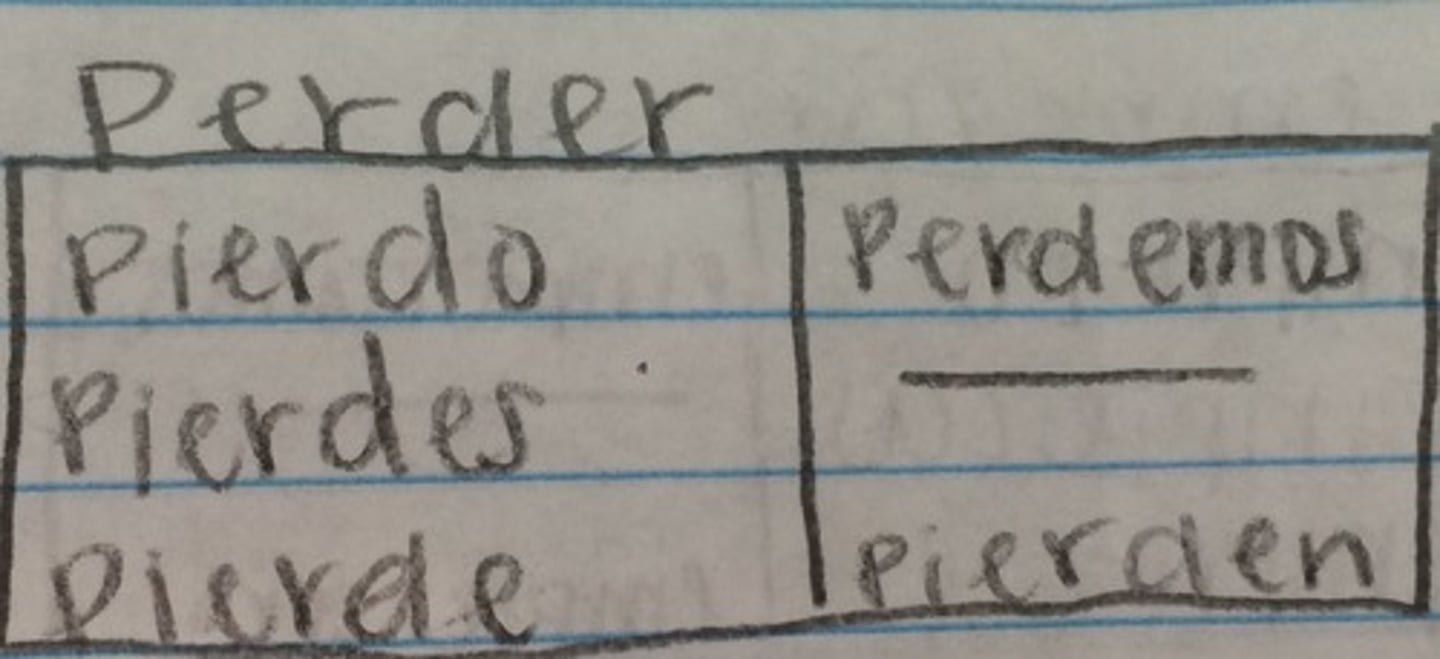 Perder
Pierdo Perdemos
Pierdes
Pierde Pierden